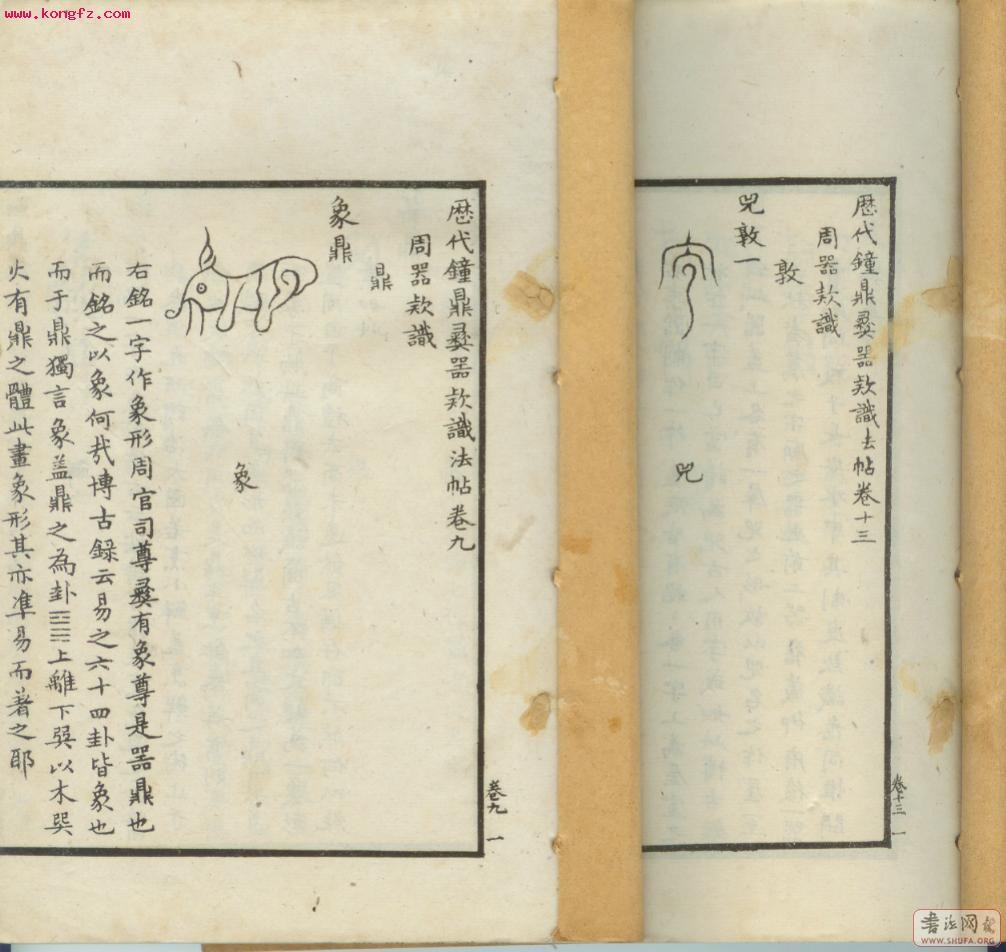 www.kongfz.com
歷代鐘鼎彝器款識法帖卷十三
周器款識
敦
兕敦一
兕
卷十三 一
歷代鐘鼎彝器款識法帖卷九
周器款識
鼎
象鼎
象
右銘一字作象形周官司尊彝有象尊是器鼎也
而銘之以象何哉博古録云易之六十四卦皆象也
而于鼎獨言象盖鼎之為卦䷱上離下巽以木巽
火有鼎之體此畫象形其亦準易而著之耶
卷九 一
書法网
WWW.SHUFA.ORG